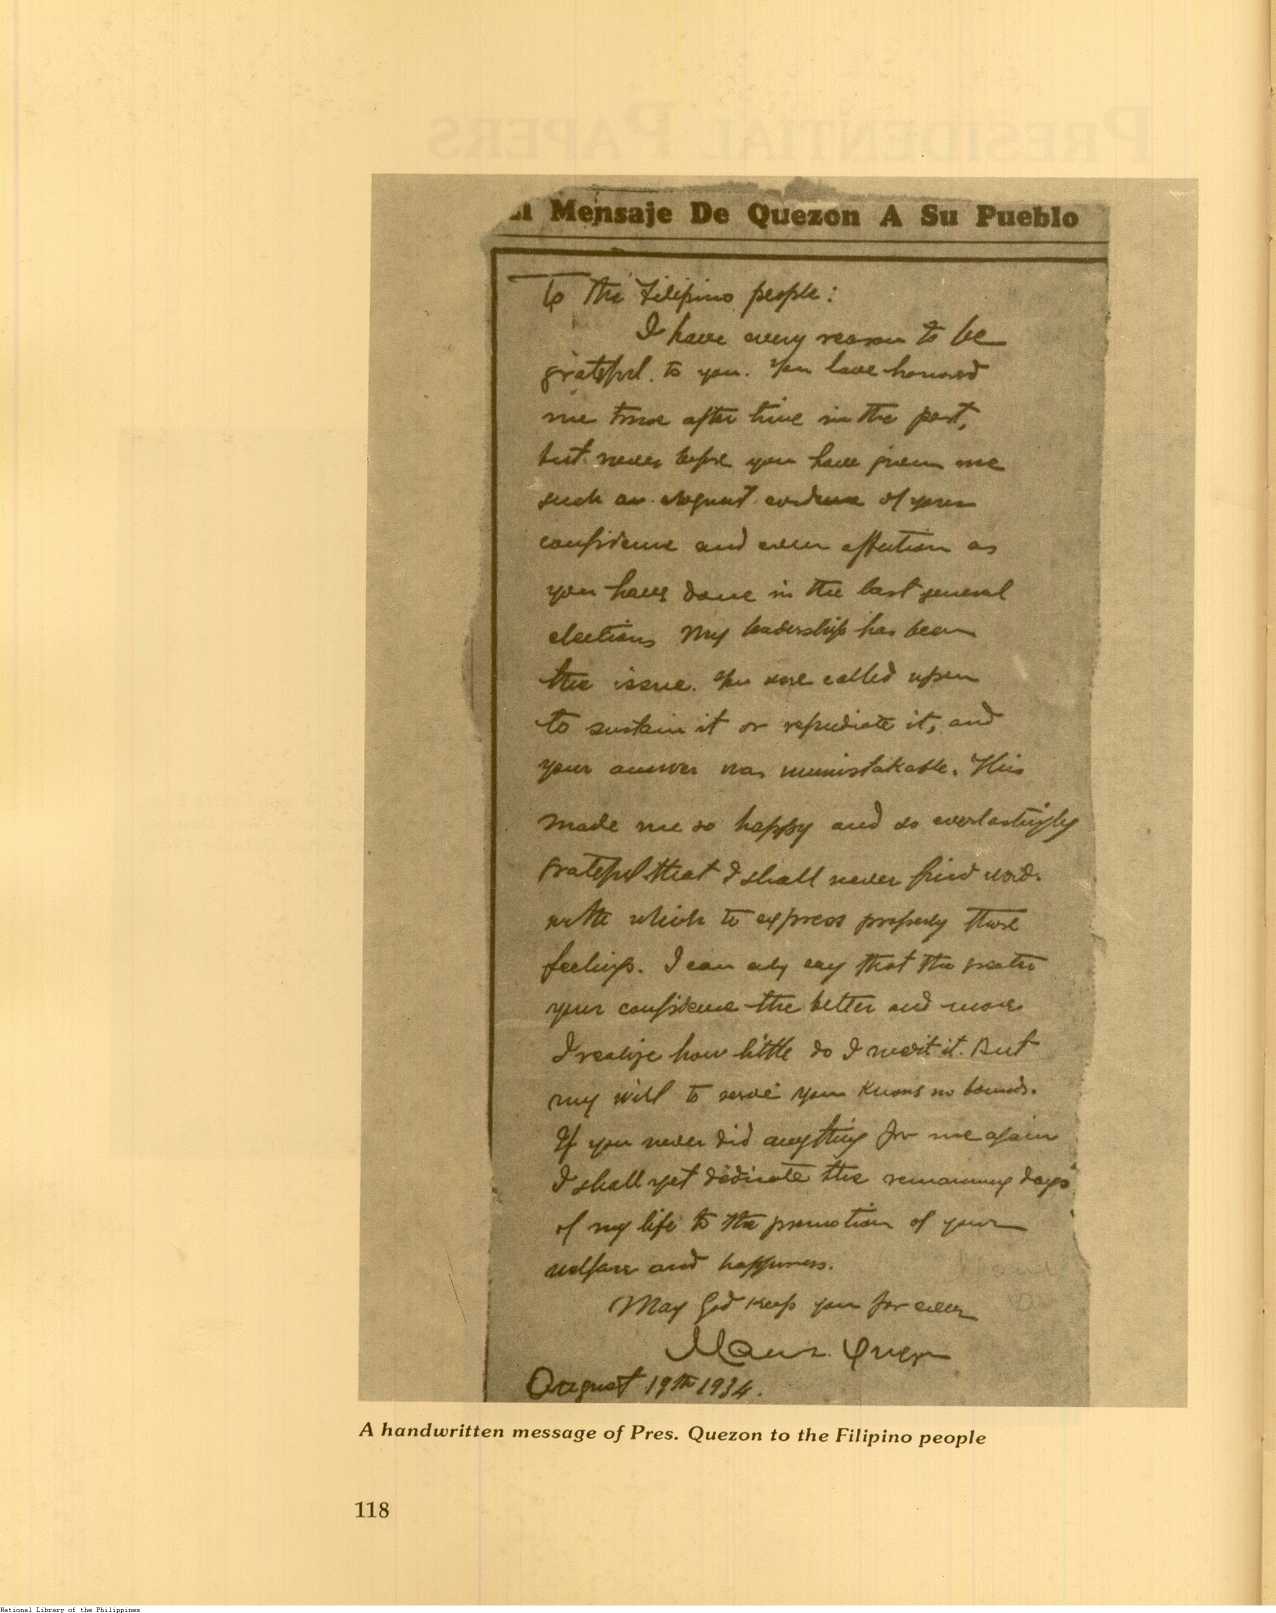 El Mensaje De Quezon A Su Pueblo
To the Filipino people:
I have every reason to be
grateful to you. You have honored
me time after time in the past,
but never before you have given me
such an eloquent evidence of your
confidence and even affection as
you have done in the last general
elections. My leadership has been
the issue. You were called upon
to sustain it or repudiate it, and
your answer was unmistakable. This
made me so happy and so everlastingly
grateful that I shall never find words
with which to express properly these
feelings. I can only say that the greater
your confidence the better and more
I realize how little do I merit it. But
my will to serve you knows no bounds.
If you never did anything for me again
I shall yet dedicate the remaining days
of my life to the promotion of your
welfare and happiness.
May God keep you for ever
Manuel Quezon
August 19th 1934.
A handwritten message of Pres. Quezon to the Filipino people
118
National Library of the Philippines